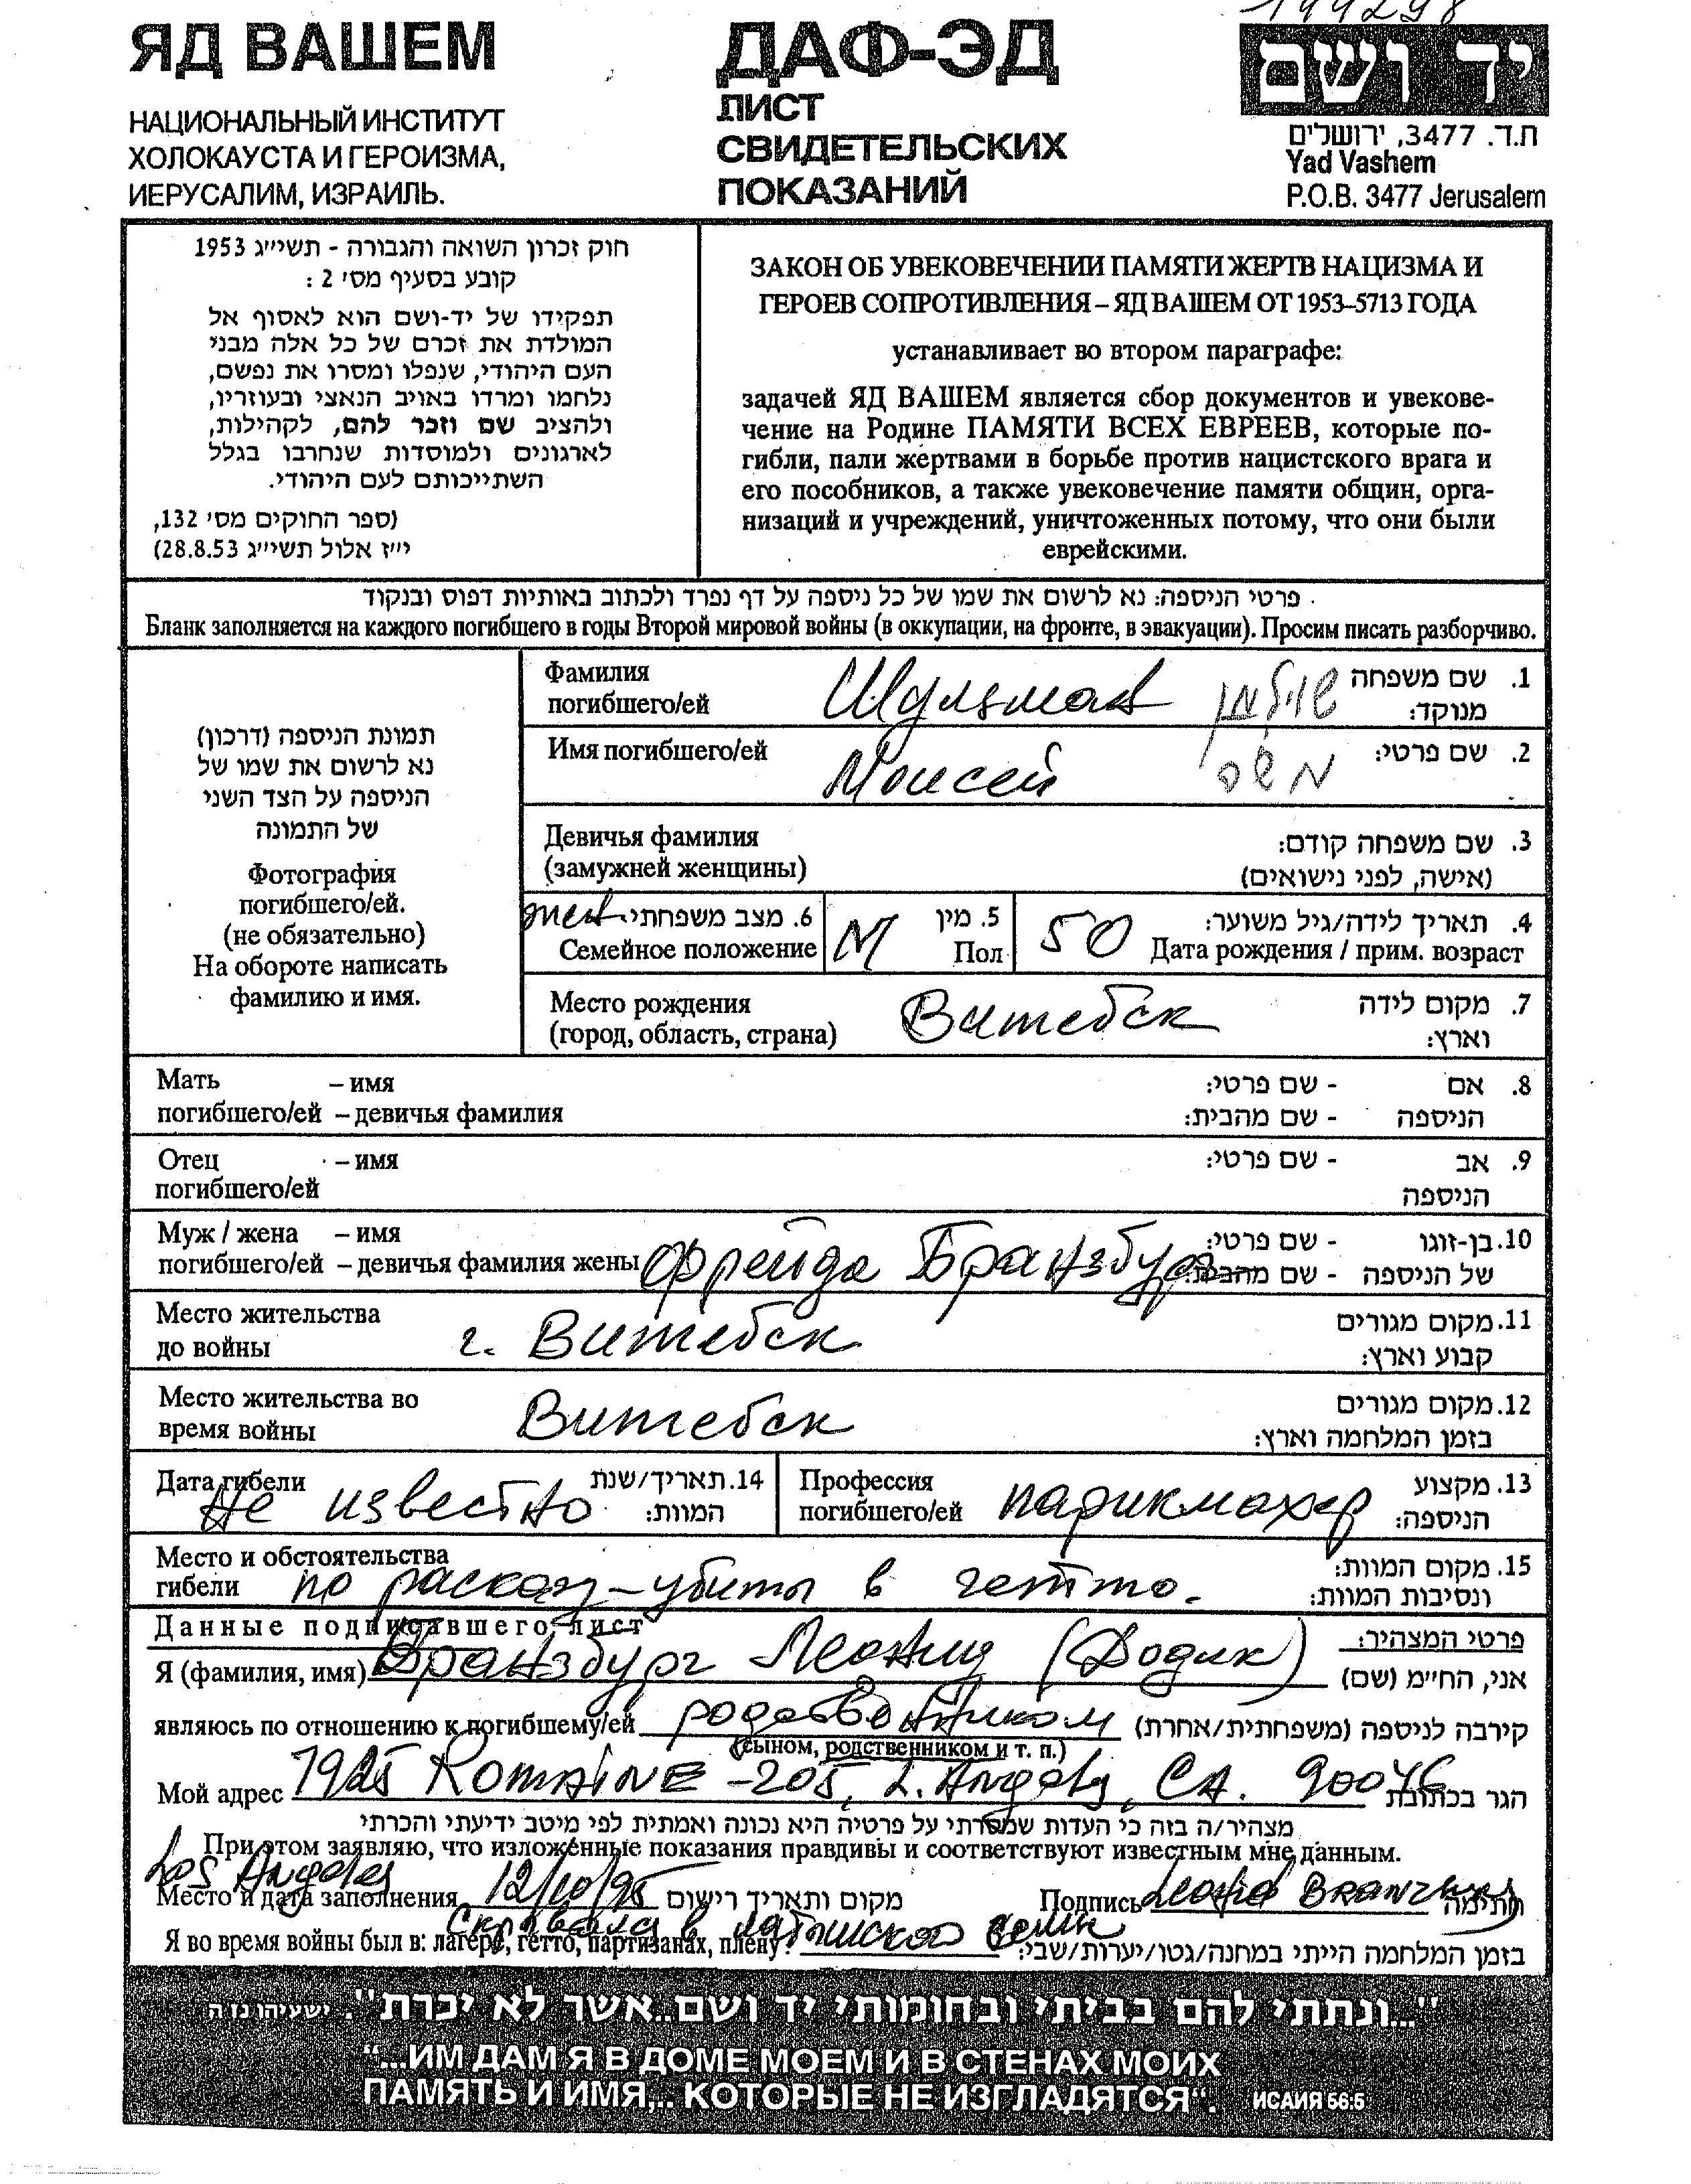 ЯД ВАШЕМ
НАЦИОНАЛЬНЫЙ ИНСТИТУТ
ХОЛОКАУСТА И ГЕРОИЗМА,
ИЕРУСАЛИМ, ИЗРАИЛЬ.
ДАФ-ЭД
ЛИСТ
СВИДЕТЕЛЬСКИХ
ПОКАЗАНИЙ
יד ושם
ת.ד. 3477, ירושלים
Yad Vashem
P.O.B. 3477 Jerusalem
חוק זכרון השואה והגבורה - תשי״ג 1953
קובע בסעיף מס׳ 2 :
תפקידו של יד-ושם הוא לאסוף אל
המולדת את זכרם של כל אלה מבני
העם היהודי, שנפלו ומסרו את נפשם,
נלחמו ומרדו באויב הנאצי ובעוזריו,
ולהציב שם וזכר להם, לקהילות,
לארגונים ולמוסדות שנחרבו בגלל
השתייכותם לעם היהודי.
(ספר החוקים מס׳ 132,
י״ז אלול תשי״ג 28.8.53)
ЗАКОН ОБ УВЕКОВЕЧЕНИИ ПАМЯТИ ЖЕРТВ НАЦИЗМА И
ГЕРОЕВ СОПРОТИВЛЕНИЯ – ЯД ВАШЕМ ОТ 1953–5713 ГОДА
устанавливает во втором параграфе:
задачей ЯД ВАШЕМ является сбор документов и увекове-
чение на Родине ПАМЯТИ ВСЕХ ЕВРЕЕВ, которые по-
гибли, пали жертвами в борьбе против нацистского врага и
его пособников, а также увековечение памяти общин, орга-
низаций и учреждений, уничтоженных потому, что они были
еврейскими.
פרטי הניספה: נא לרשום את שמו של כל ניספה על דף נפרד ולכתוב באותיות דפוס ובנקוד
Бланк заполняется на каждого погибшего в годы Второй мировой войны (в оккупации, на фронте, в эвакуации). Просим писать разборчиво.
תמונת הניספה (דרכון)
נא לרשום את שמו של
הניספה על הצד השני
של התמונה
Фотография
погибшего/ей.
(не обязательно)
На обороте написать
фамилию и имя.
Фамилия Шульман שולמן 1. שם משפחה
погибшего/ей מנוקד:
Имя погибшего/ей Моисей משה 2. שם פרטי:
Девичья фамилия 3. שם משפחה קודם:
(замужней женщины) (אישה, לפני נישואים)
6. מצב משפחתי 5. מין 4. תאריך לידה/גיל משוער:
Семейное положение М Пол 50 Дата рождения / прим. возраст
Место рождения Витебск 7. מקום לידה
(город, область, страна) וארץ:
Мать – имя - שם פרטי: 8. אם
погибшего/ей – девичья фамилия - שם מהבית: הניספה
Отец – имя - שם פרטי: 9. אב
погибшего/ей הניספה
Муж / жена – имя - שם פרטי: 10. בן-זוגו
погибшего/ей – девичья фамилия жены Фрейда Бранзбург - שם מהבית: של הניספה
Место жительства 11. מקום מגורים
до войны г. Витебск קבוע וארץ:
Место жительства во 12. מקום מגורים
время войны Витебск בזמן המלחמה וארץ:
Дата гибели 14. תאריך/שנת Профессия 13. מקצוע
Не известно המוות: погибшего/ей парикмахер הניספה:
Место и обстоятельства 15. מקום המוות:
гибели по расказ – убиты в гетто. ונסיבות המוות:
Данные подписавшего лист פרטי המצהיר:
Я (фамилия, имя) Бранзбург Леонид (Додик) אני, החי״מ (שם)
являюсь по отношению к погибшему/ей родственником קירבה לניספה (משפחתית/אחרת)
(сыном, родственником и т. п.)
Мой адрес 7925 ROMAINE - 205, L. Angeles, CA. 90046 הגר בכתובת
מצהיר/ה בזה כי העדות שמסרתי על פרטיה היא נכונה ואמתית לפי מיטב ידיעתי והכרתי
При этом заявляю, что изложенные показания правдивы и соответствуют известным мне данным.
Los Angeles
Место и дата заполнения 12/10/95 מקום ותאריך רישום Подпись Leonid Branzburg חתימה
Я во время войны был в: лагере, гетто, партизанах, плену? בזמן המלחמה הייתי במחנה/גטו/יערות/שבי:
"...ונתתי להם בביתי ובחומותי יד ושם...אשר לא יכרת". ישעיהו נו ה
“...ИМ ДАМ Я В ДОМЕ МОЕМ И В СТЕНАХ МОИХ
ПАМЯТЬ И ИМЯ,.. КОТОРЫЕ НЕ ИЗГЛАДЯТСЯ“. ИСАИЯ 56:5